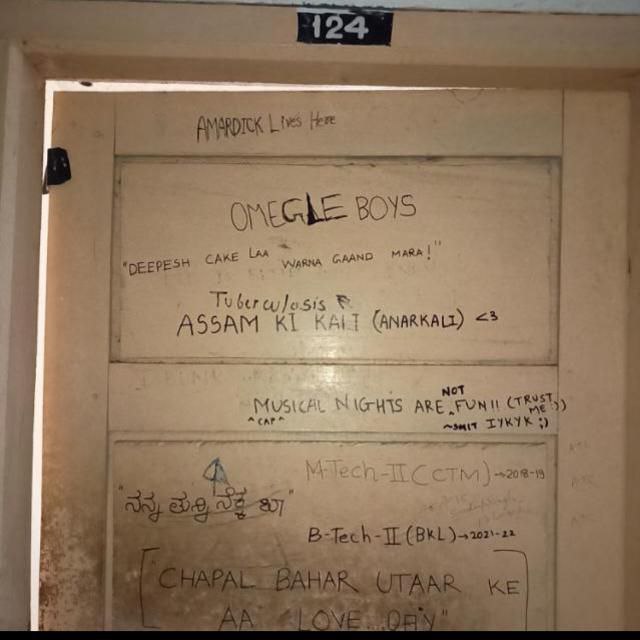 124
AMARDICK Lives Here
OMEGLE BOYS
"DEEPESH CAKE LAA WARNA GAAND MARA!"
Tuberculosis
ASSAM KI KALI (ANARKALI) <3
NOT
MUSICAL NIGHTS ARE FUN!! (TRUST ME :))
^CAP^ ~SMIT IYKYK ;)
M-Tech-II (CTM) → 2018-19
"ನನ್ನ ತುನ್ನಿ ನೆಕ್ಕ ಬಾ"
B-Tech-II (BKL) → 2021-22
CHAPAL BAHAR UTAAR KE
AA LOVE